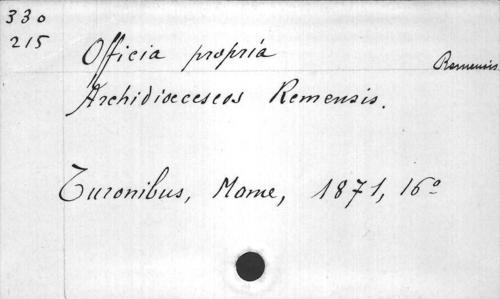 330
215
Officia propria
Remensis
Archidiœceseos Remensis.
Turonibus, Mame, 1871, 16º